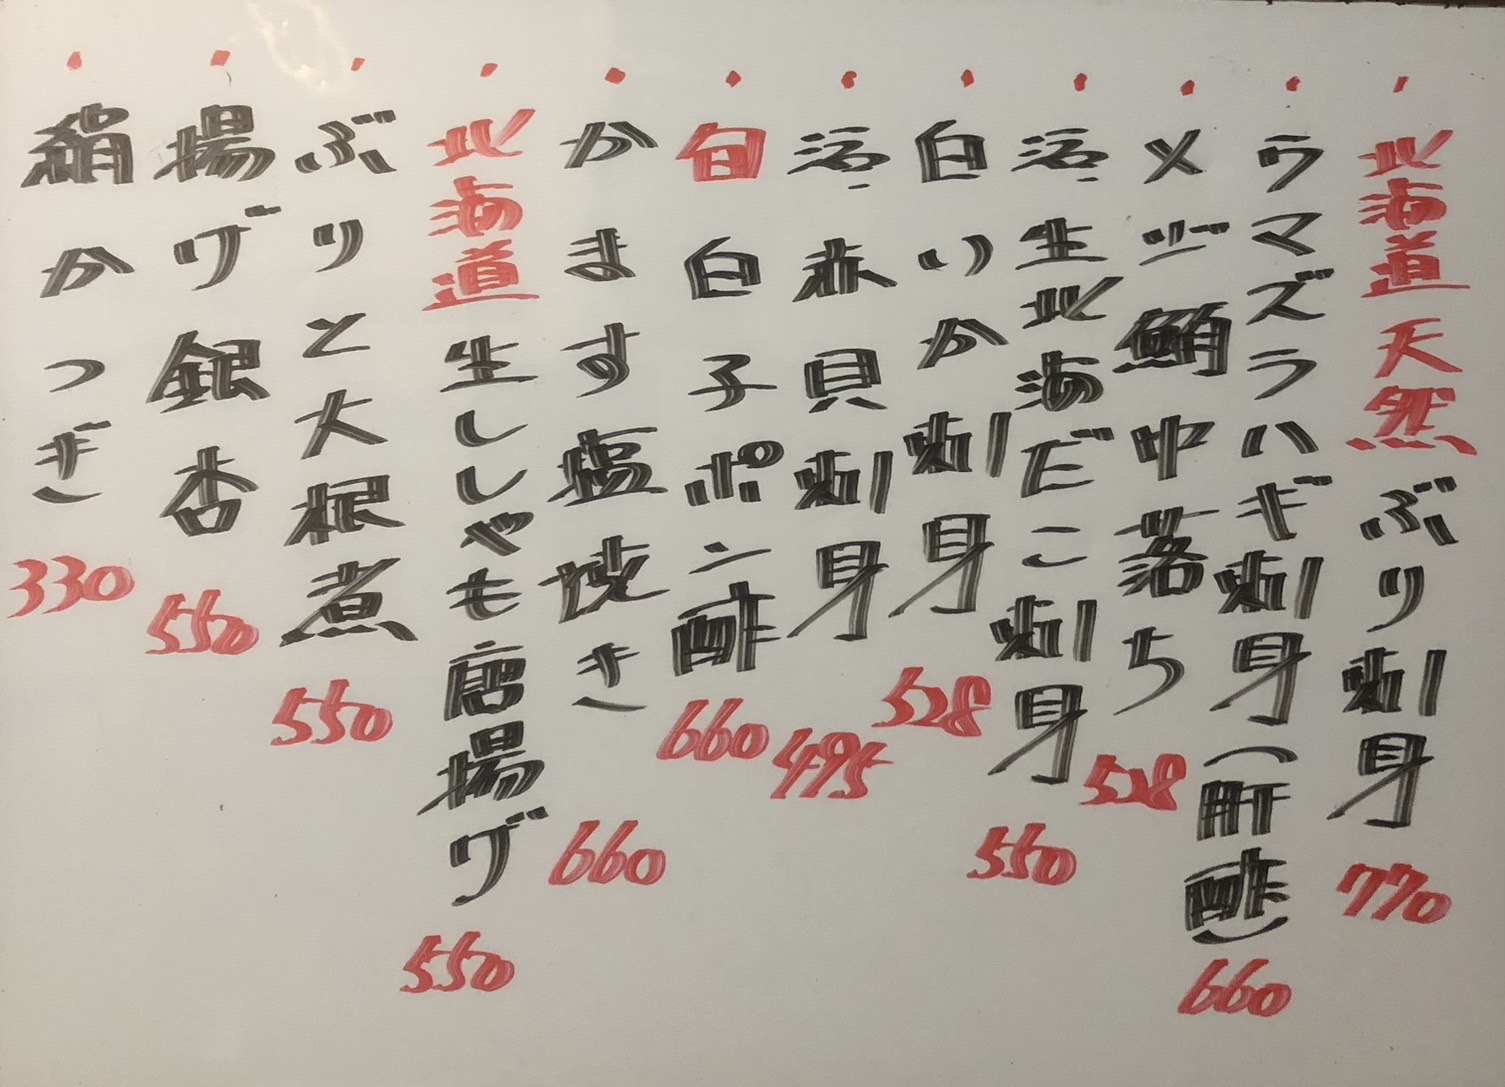 ・北海道天然ぶり刺身 770
・ウマズラハギ刺身(肝酢) 660
・メヅ鮪中落ち 528
・活生北海だこ刺身 550
・白いか刺身 528
・活赤貝刺身 495
・旬白子ポン酢 660
・かます塩焼き 660
・北海道生ししゃも唐揚げ 550
・ぶりと大根煮 550
・揚げ銀杏 550
・絹かつぎ 330